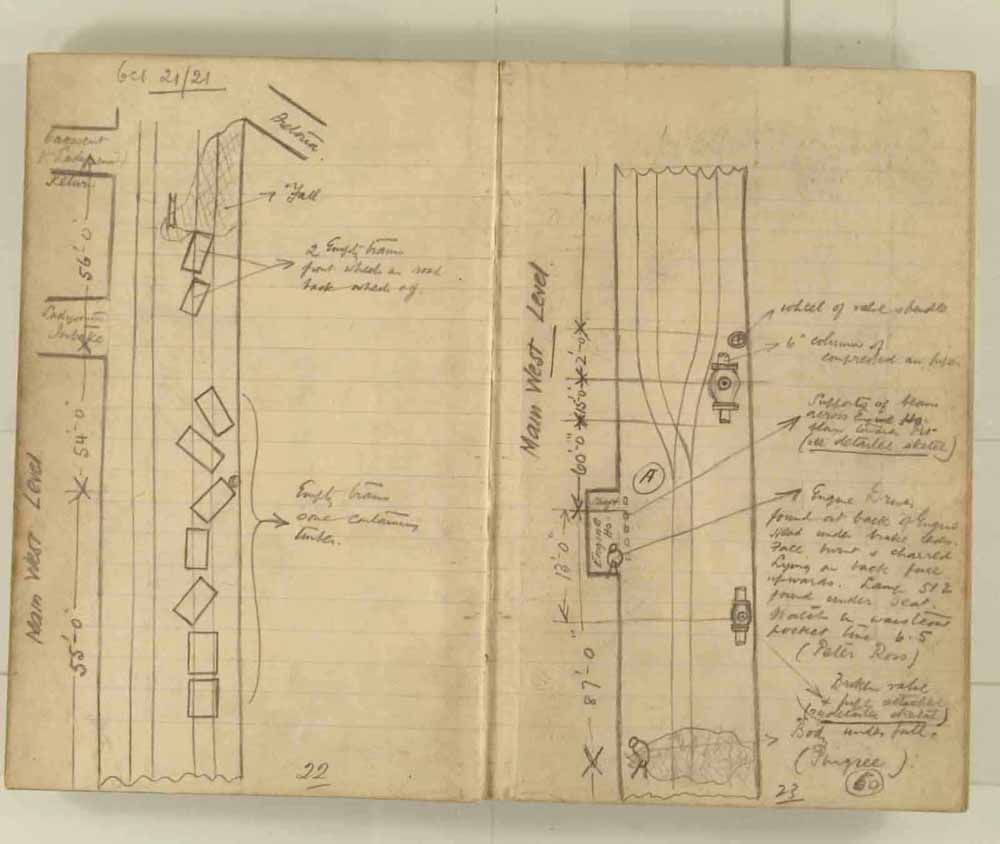 Oct 21/21
Return
56'-0"
Ladysmith
Intake
54'-0"
Main West Level
55'-0"
Fall
2 Empty trams
front wheels on road
back wheels off
Empty trams
one containing
timber.
22
Main West Level
2'-0"
15'-0"
60'-0"
13'-0"
87'-0"
A
Engine Ho.
wheel of valve & handle
6" column of
compressed air pipe
Supports of beam
across Engine Ho.
(see detailed sketch)
Engine Driver
found at back of Engine
Head under brake lever.
Face burnt & charred
Lying on back face
upwards. Lamp 512
found under seat.
Watch in waistcoat
pocket time 6.5
(Peter Ross)
Broken valve
& pipe attached
(see detailed sketch)
Body under fall.
(Pingree)
23
60